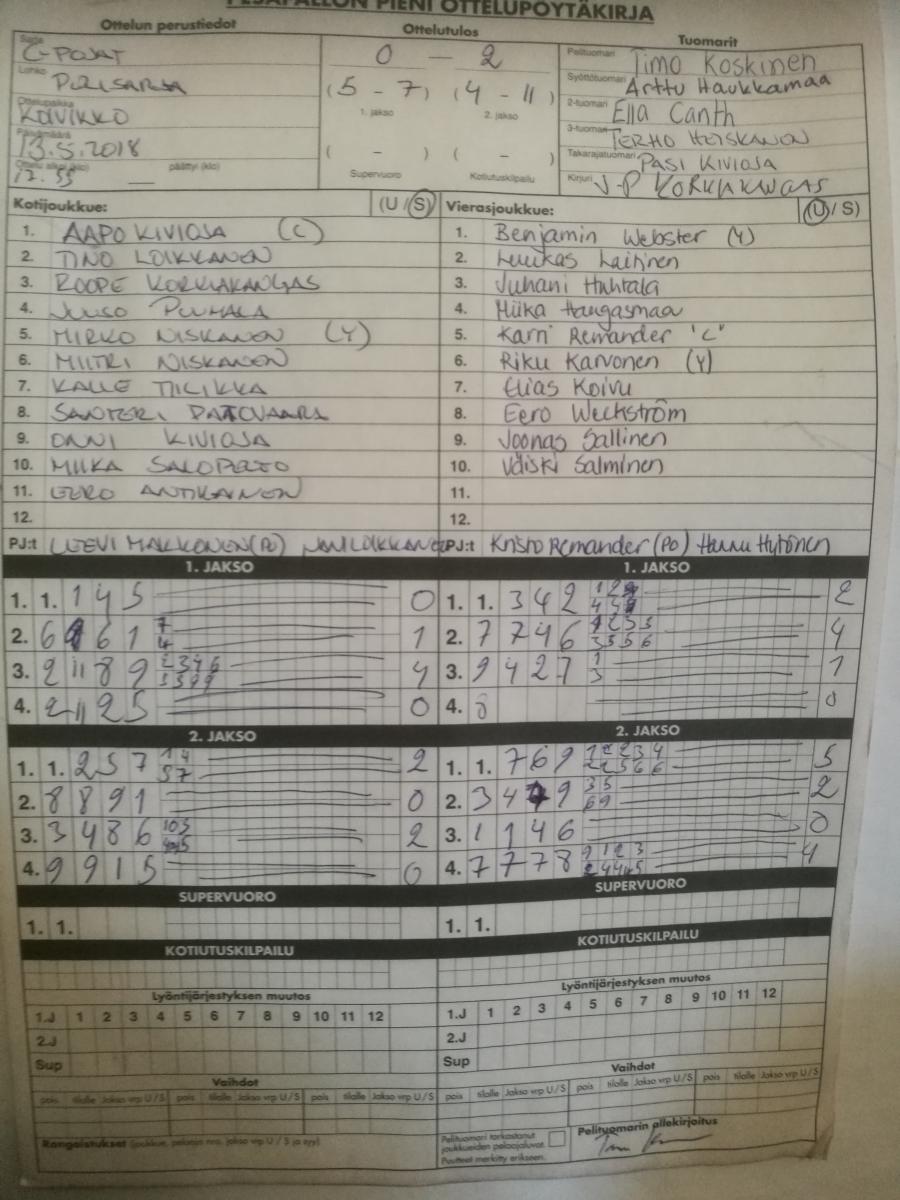 PESÄPALLON PIENI OTTELUPÖYTÄKIRJA
Ottelun perustiedot Ottelutulos Tuomarit
Sarja C-POJAT
Lohko
Ottelupaikka KOIVIKKO
Päivämäärä 13.5.2018
Ottelu alkoi (klo) 12.55 päättyi (klo)
0 - 2
(5 - 7) (4 - 11)
1. jakso 2. jakso
( - ) ( - )
Supervuoro Kotiutuskilpailu
Pelituomari Timo Koskinen
Syöttötuomari Arttu Haukkamaa
2-tuomari Ella Canth
3-tuomari TERHO HEISKANEN
Takarajatuomari PASI KIVIOJA
Kirjuri J-P KORKIAKANGAS
Kotijoukkue: (U / S) Vierasjoukkue: (U / S)
1. AAPO KIVIOJA (C) 1. Benjamin Webster (Y)
2. TINO LOIKKANEN 2. Luukas Laitinen
3. ROOPE KORKIAKANGAS 3. Juhani Huhtala
4. JUUSO PUUMALA 4. Miika Haugasmaa
5. MIRKO NISKANEN (Y) 5. Karri Remander "C"
6. MIITRI NISKANEN 6. Riku Karvonen (Y)
7. KALLE TIILIKKA 7. Elias Koivu
8. SANTERI PATOVAARA 8. Eero Weckström
9. ONNI KIVIOJA 9. Joonas Sallinen
10. MIIKA SALOPELTO 10. Väiski Salminen
11. EERO ANTIKAINEN 11.
12. 12.
PJ:t LEEVI MAKKONEN (PO) JANI LOIKKANEN PJ:t Kristo Remander (PO) Hannu Hytönen
1. JAKSO 1. JAKSO
1. 1. 1 4 5 0 1. 1. 3 4 2 2
2. 6 6 1 7 4 1 2. 7 7 4 6 4
3. 2 11 8 9 2346 3599 4 3. 9 4 2 7 1 3 1
4. 2 11 2 5 0 4. 8 0
2. JAKSO 2. JAKSO
1. 1. 2 5 7 14 57 2 1. 1. 7 6 9 12234 22566 5
2. 8 8 9 1 0 2. 3 4 9 35 69 2
3. 3 4 8 6 2 3. 1 1 4 6 0
4. 9 9 1 5 0 4. 7 7 7 8 4
SUPERVUORO SUPERVUORO
1. 1. 1. 1.
KOTIUTUSKILPAILU KOTIUTUSKILPAILU
Lyöntijärjestyksen muutos Lyöntijärjestyksen muutos
1.J 1 2 3 4 5 6 7 8 9 10 11 12 1.J 1 2 3 4 5 6 7 8 9 10 11 12
2.J 2.J
Sup Sup
Vaihdot Vaihdot
pois tilalle Jakso vrp U/S pois tilalle Jakso vrp U/S pois tilalle Jakso vrp U/S pois tilalle Jakso vrp U/S pois tilalle Jakso vrp U/S pois tilalle Jakso vrp U/S
Rangaistukset (joukkue, pelaajan nro, jakso vrp U / S ja syy)
Pelituomari tarkastanut
joukkueiden pelaajaluvat.
Puutteet merkitty erikseen.
Pelituomarin allekirjoitus